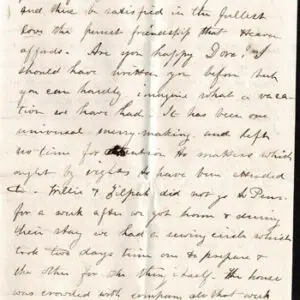 and thus be satisfied in the fullest
love the purest friendship that Heaven
affords. Are you happy Dove? I
should have written you before but
you can hardly imagine what a vaca-
tion we have had. It has been one
universal merry-making, and left
no time for attention to matters which
ought by rights to have been attended
to. Willie & did not go to
for a week after we got home & during
their stay we had a sewing circle which
took two days time one to prepare &
the other for the thing itself. The house
was crowded with company all that week